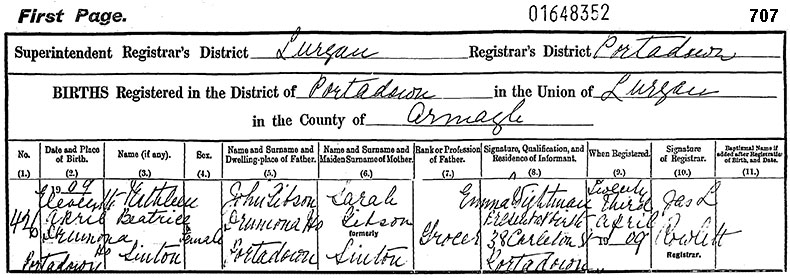 First Page. 01648352 707
Superintendent Registrar's District Lurgan Registrar's District Portadown
BIRTHS Registered in the District of Portadown in the Union of Lurgan
in the County of Armagh
No. Date and Place of Birth. Name (if any). Sex. Name and Surname and Dwelling-place of Father. Name and Surname and Maiden Surname of Mother. Rank or Profession of Father. Signature, Qualification, and Residence of Informant. When Registered. Signature of Registrar. Baptismal Name if added after Registration of Birth, and Date.
(1.) (2.) (3.) (4.) (5.) (6.) (7.) (8.) (9.) (10.) (11.)
19 09
Eleventh Kathleen John Gibson Sarah Emma Wightman Twenty Third Jas L
April Beatrice Drumona Ho Gibson Present at birth April
Drumona Ho Female formerly Grocer 38 Carleton St 19 09 Rowlett
Portadown Sinton Portadown Sinton Portadown Registrar.